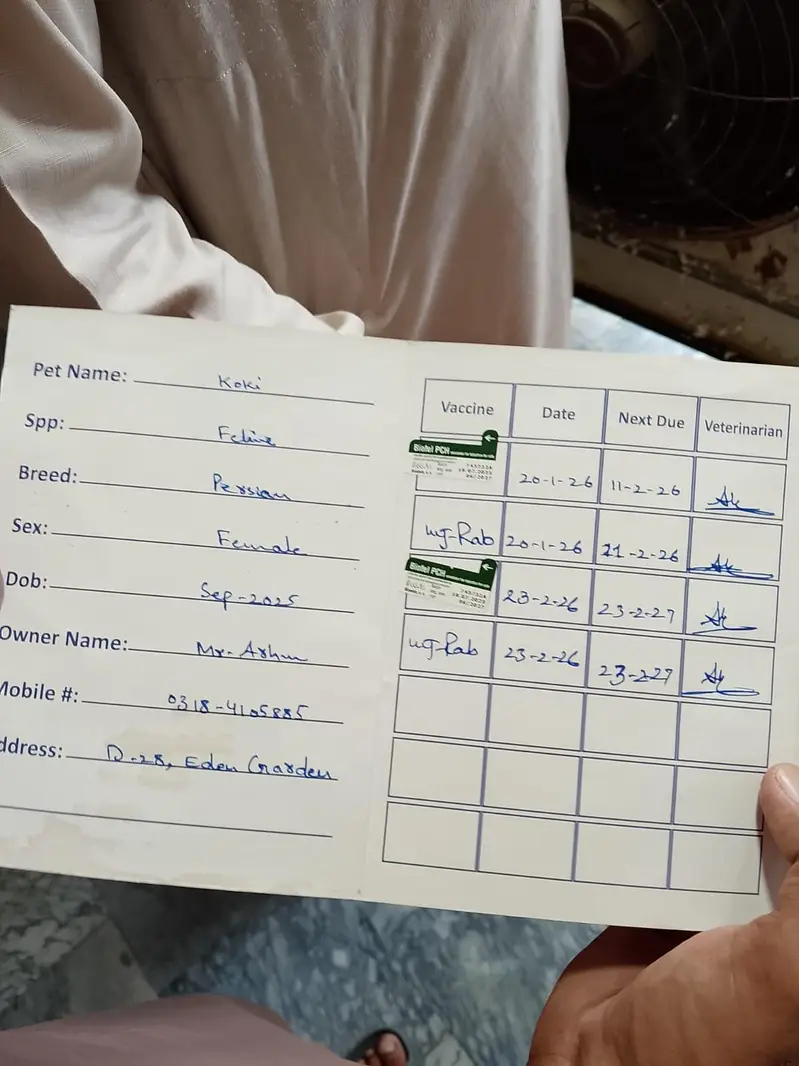 Pet Name: Koki
Spp: Feline
Breed: Persian
Sex: Female
Dob: Sep-2025
Owner Name: Mr. Arhm
Mobile #: 0318-4105885
ddress: D-28, Eden Garden
Vaccine Date Next Due Veterinarian
Biofel PCH 20-1-26 11-2-26
ug-Rab 20-1-26 11-2-26
Biofel PCH 23-2-26 23-2-27
ug-Rab 23-2-26 23-2-27